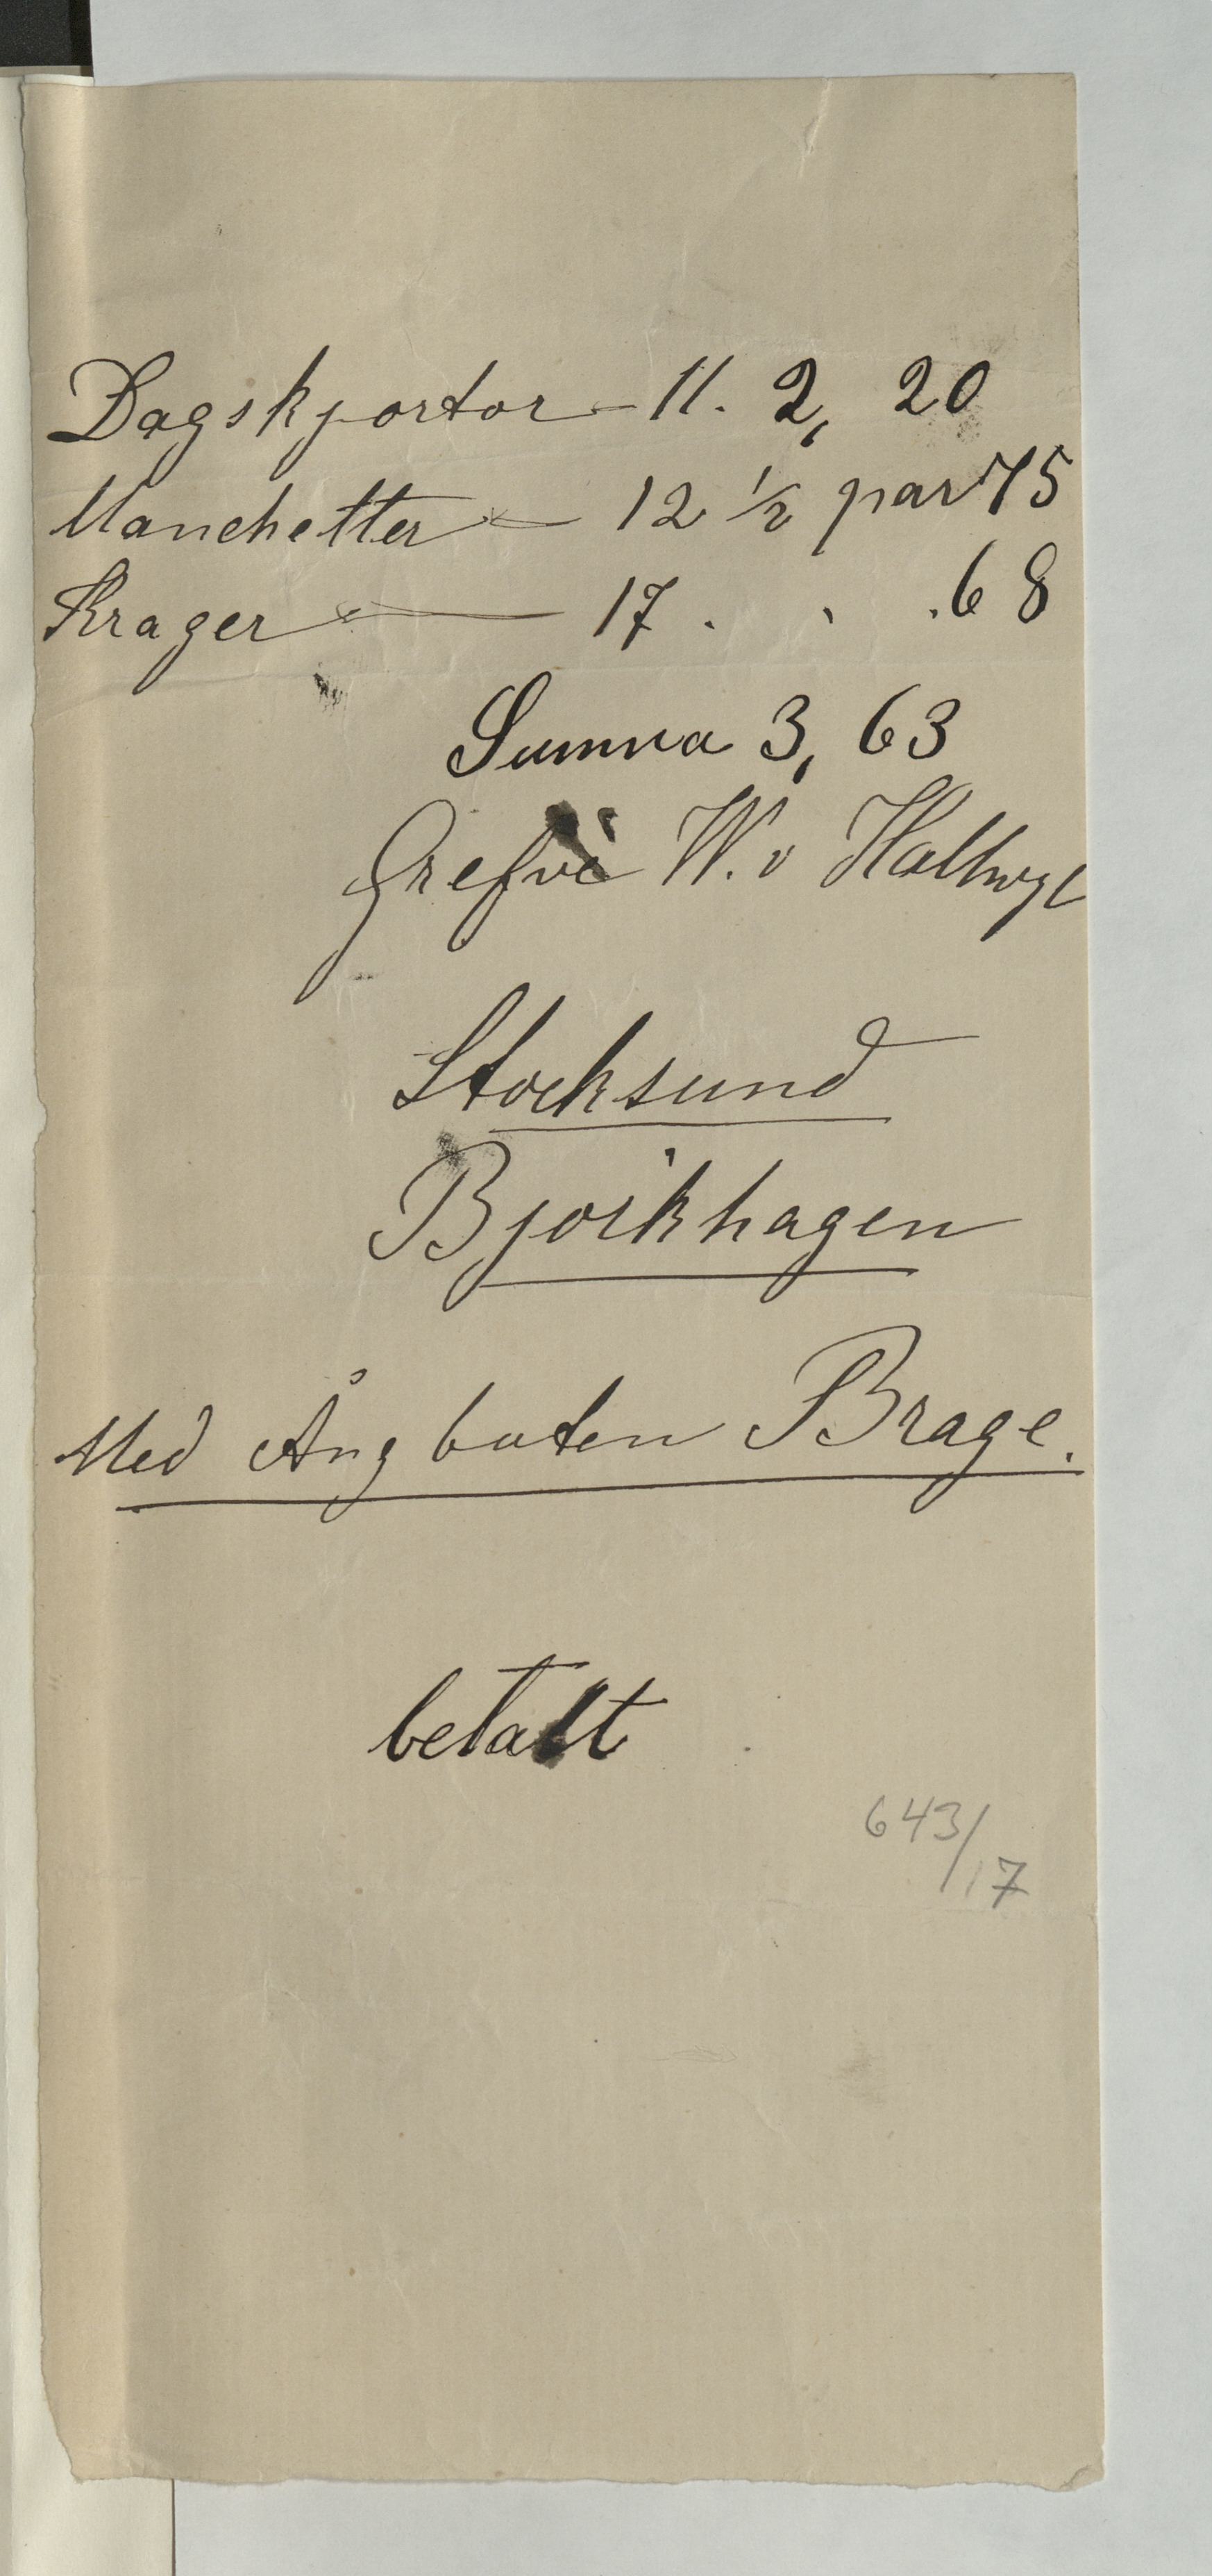 Dagskjortor - 11. 2, 20
Manchetter - 12 ½ par 75
Krager - 17 . . . 68
Summa 3, 63
Grefve W. v Hallwyl
Stocksund
Bjorkhagen
Med Ångbaten Brage.
betalt
643/17